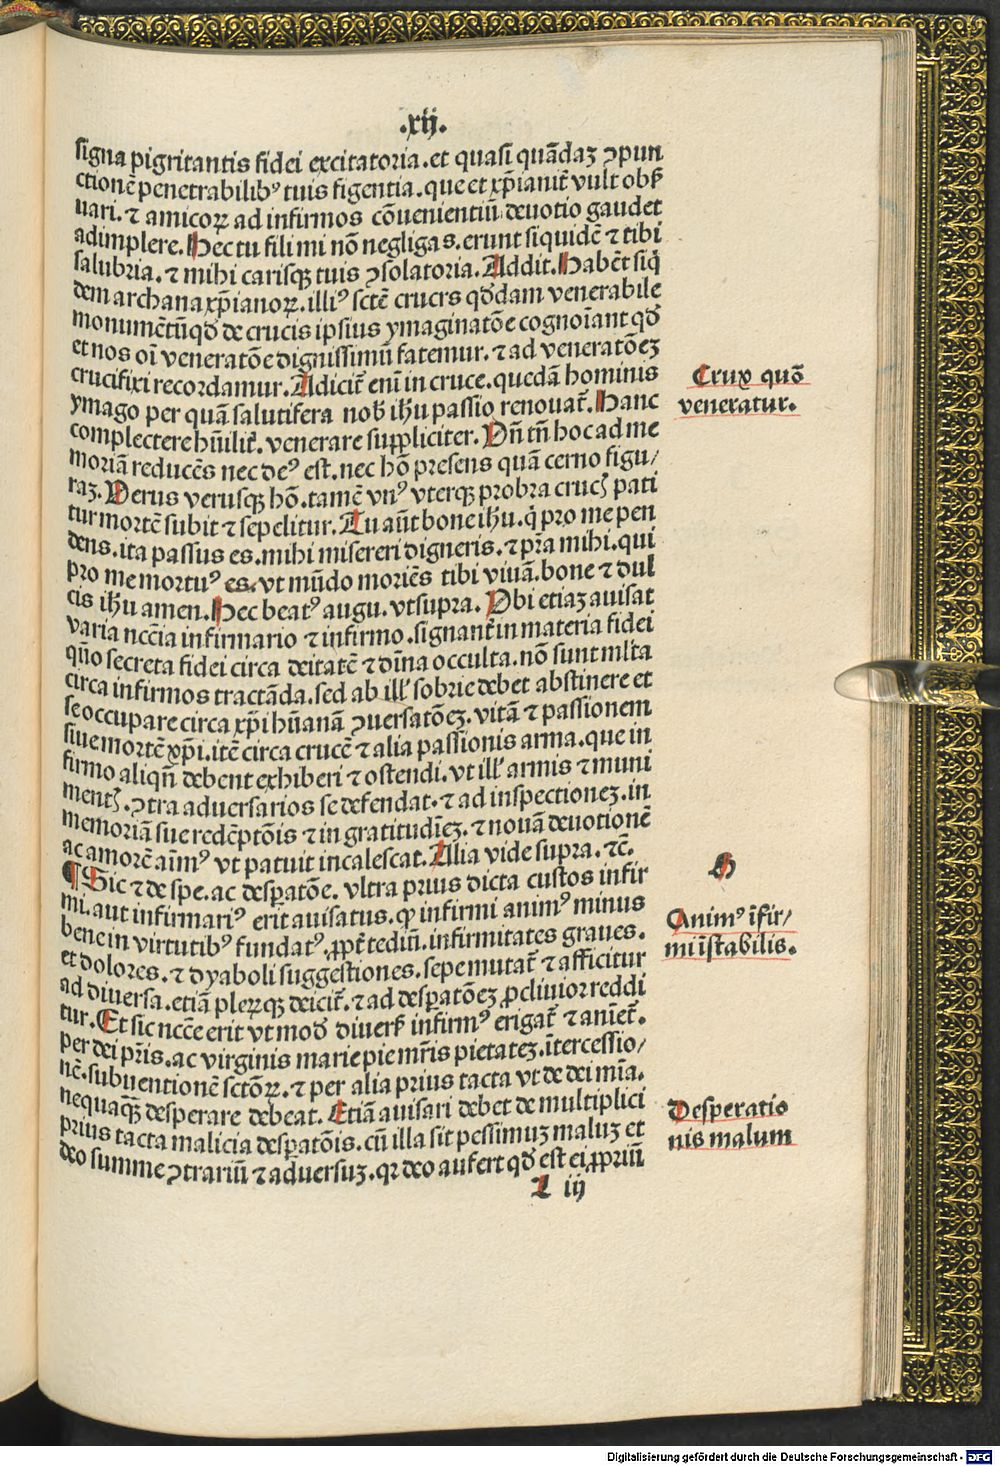 .xij.
signa pigritantis fidei excitatoria. et quasi quãdaʒ ↄpun
ctionẽ penetrabilibꝰ tuis figentia. que et xp̃ianit̃ vult obẜ
uari. ⁊ amicoꝝ ad infirmos cõuenientiũ deuotio gaudet
adimplere. Hec tu fili mi nõ negligas. erunt siquidẽ ⁊ tibi
salubria. ⁊ mihi carisqꝫ tuis ↄsolatoria. Addit. Habẽt siq̃
dem archana xp̃ianoꝝ. illiꝰ sctẽ crucrs qd̃dam venerabile
monumẽtũ qd̃ de crucis ipsius ymaginatõe cognoĩant qd̃
et nos oĩ veneratõe dignissimũ fatemur. ⁊ ad veneratõeʒ
crucifixi recordamur. Adicit̃ enĩ in cruce. quedã hominis
ymago per quã salutifera nob̃ ih̃u passio renouat̃. Hanc
complectere hũilit̃. venerare suppliciter. Dñ tñ hoc ad me
moriã reducẽs nec deꝰ est. nec hõ presens quã cerno figu/
raʒ. Verus verusqꝫ hõ. tamẽ vnꝰ vterqꝫ probra crucꝭ pati
tur mortẽ subit ⁊ sepelitur. Tu aũt bone ih̃u. q̃ pro me pen
dens. ita passus es. mihi misereri digneris. ⁊ pr̃a mihi. qui
pro me mortuꝰ es. vt mũdo moriẽs tibi viuã. bone ⁊ dul
cis ih̃u amen. Hec beatꝰ augu. vt supra. Vbi etiaʒ auisat
varia nccĩa infirmario ⁊ infirmo. signant̃ in materia fidei
qũo secreta fidei circa deitatẽ ⁊ dĩna occulta. nõ sunt ml̃ta
circa infirmos tractãda. sed ab ill̃ sobrie debet abstinere et
se occupare circa xp̃i hũanã ↄuersatõeʒ. vitã ⁊ passionem
siue mortẽ xp̃i. itẽ circa crucẽ ⁊ alia passionis arma. que in
firmo aliqñ debent exhiberi ⁊ ostendi. vt ill̃ armis ⁊ muni
mentꝭ. ↄtra aduersarios se defendat. ⁊ ad inspectioneʒ. in
memoriã sue redẽptõis ⁊ in gratitudĩeʒ. ⁊ nouã deuotionẽ
ac amorẽ aĩmꝰ vt patuit incalescat. Alia vide supra. ⁊c̃.
¶ Sic ⁊ de spe. ac desꝑatõe. vltra prius dicta custos infir
mi. aut infirmariꝰ erit auisatus. ꝙ infirmi animꝰ minus
bene in virtutibꝰ fundatꝰ. ꝓpt̃ tediũ. infirmitates graues.
et dolores. ⁊ dyaboli suggestiones. sepe mutat̃ ⁊ afficitur
ad diuersa. etiã pleꝝqꝫ deicit̃. ⁊ ad desꝑatõeʒ ꝓcliuior reddi
tur. Et sic nccẽe erit vt mod̃ diuerẜ infirmꝰ erigat̃ ⁊ anĩet̃.
per dei pr̃is. ac virginis marie pie mr̃is pietateʒ. ĩtercessio/
nẽ. subuentionẽ sctõꝝ. ⁊ per alia prius tacta vt de dei mĩa.
nequaqꝫ̃ desperare debeat. Etiã auisari debet de multiplici
prius tacta malicia desꝑatõis. cũ illa sit pessimuʒ maluʒ et
deo summe ↄtrariũ ⁊ aduersuʒ. qr deo aufert qd̃ est ei ꝓpriũ
A iij
Crux quõ
veneratur.
G
Animꝰ ĩfir/
mi ĩstabilis.
Desperatio
nis malum
Digitalisierung gefördert durch die Deutsche Forschungsgemeinschaft - DFG